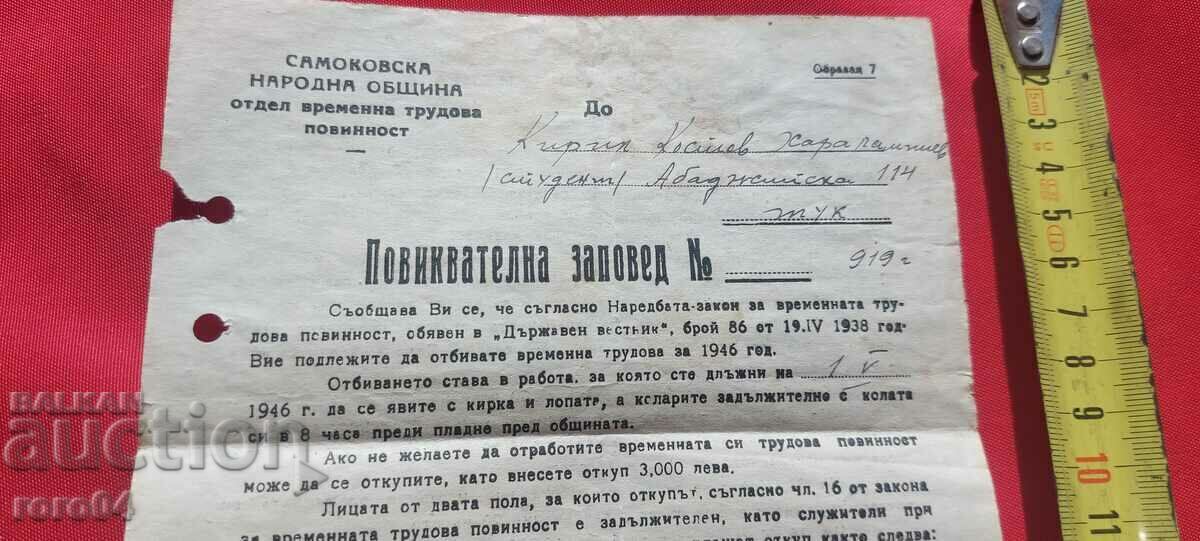 САМОКОВСКА
НАРОДНА ОБЩИНА
отдел временна трудова
повинност
Образец 7
До
Кирил Костов Харалампиев
/студент/ Абаджийска 114
тук
Повиквателна заповед № 919 г
Съобщава Ви се, че съгласно Наредбата-закон за временната тру-
дова повинност, обявен в „Държавен вестник“, брой 86 от 19.IV 1938 год.
Вие подлежите да отбивате временна трудова за 1946 год.
Отбиването става в работа, за която сте длъжни на 1 V
1946 г. да се явите с кирка и лопата, а коларите задължително с колата
си в 8 часа преди пладне пред общината.
Ако не желаете да отработите временната си трудова повинност
може да се откупите, като внесете откуп 3,000 лева.
Лицата от двата пола, за които откупът, съгласно чл. 16 от закона
за временната трудова повинност е задължителен, като служители при
откуп както следва:
BALKAN
auction
roro04
2
3
4
5
6
7
8
9
10
11